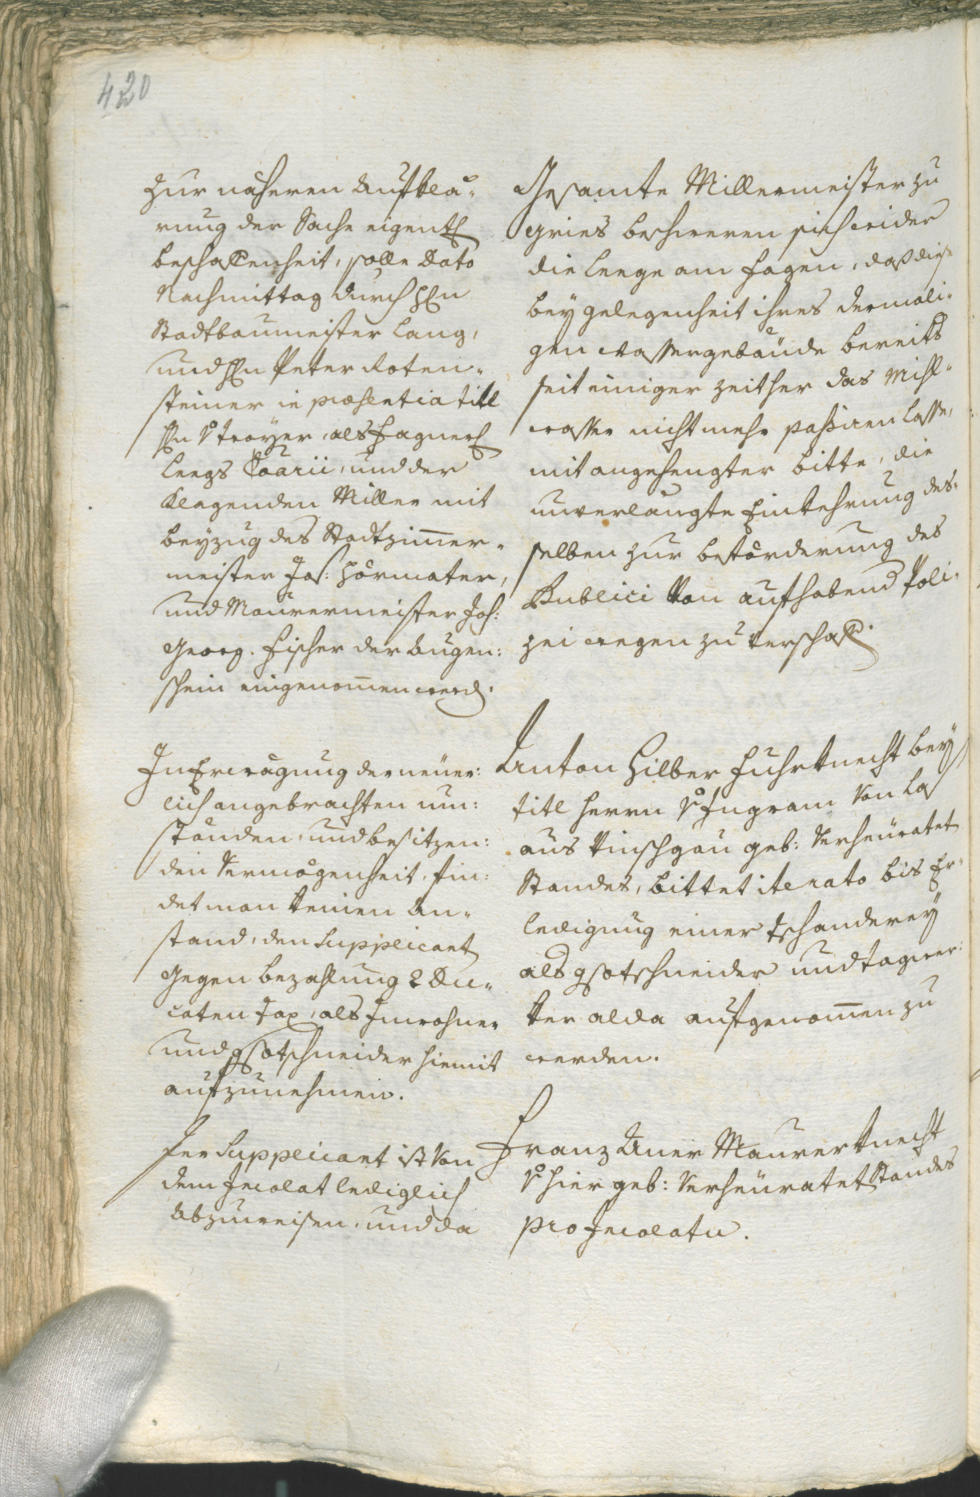 420
Zur näheren Aufklä-
rung der Sache eigentl
beschaffenheit, solle Dato
Nachmittag durch Hln
Stadtbaumeister Lang,
und Hln Peter Roten-
steiner in præsentia titl
Hln v Troyer, als Fagner
Leegs Coarii, und der
klagenden Miller mit
beyzug des Stadtzimmer-
meister Jos: Hörmater,
und Maurermeister Joh:
Georg Fischer der Augen:
schein eingenommen werd.
Gesamte Millermeister zu
Gries beschweren sich wider
die Leege am Fagen, daß diese
bey gelegenheit ihres dermali-
gen Wassergebäude bereits
seit einiger zeither das Mihl-
wasser nicht mehr passiren lasse,
mit angehengter bitte, die
unverlangte Einkehrung des-
selben zur beförderung des
Publici von aufhabend Poli-
zei wegen zu verschaff.
In Erwägung der neuer:
lich angebrachten um:
ständen, und besitzen:
den Vermögenheit, fin:
det man keinen An-
stand, den Supplicant
gegen bezahlung 2 Du-
caten Tax, als Inwohner
und gsotschneider hiemit
aufzunehmen.
Anton Hilber Fuhrknecht bey
titl Herrn v Ingram von Laß
aus Vinschgau geb: Verheüratet
Standes, bittet iterato bis Er-
ledigung einer Tschanderey
als gsotschneider und tagwer-
ker alda aufgenommen zu
werden.
Der Supplicant ist von
dem Incolat lediglich
abzuweisen, und da
Franz Auer Maurerknecht
v hier geb: Verheüratet Standes
pro Incolatu.